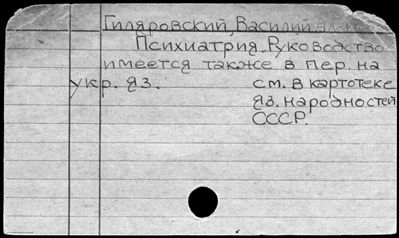 Гиляровский, Василий
Психиатрия. Руководство
имеется также в пер. на
укр. яз. см. в картотеке
яз. народностей
СССР.